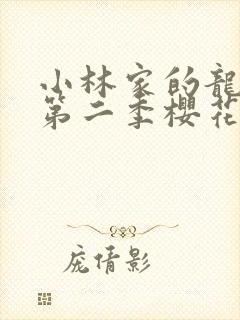 小林家的龍
第二季櫻花
庞倩影